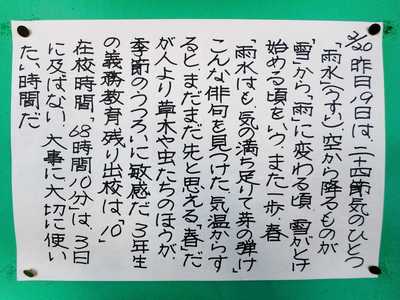 2/20 昨日19日は、二十四節気のひとつ
「雨水(うすい)」空から降るものが
「雪」から「雨」に変わる頃、雪がとけ
始める頃をいう。また一歩、春
「雨水はも、気の満ち足りて芽の弾け」
こんな俳句を見つけた。気温からす
るとまだまだ先と思える「春」だ
が人より草木や虫たちのほうが、
季節のうつろいに敏感だ。3年生
の義務教育残り出校は、"10"
在校時間"68時間10分"は、3日
に及ばない。大事に大切に使い
たい時間だ